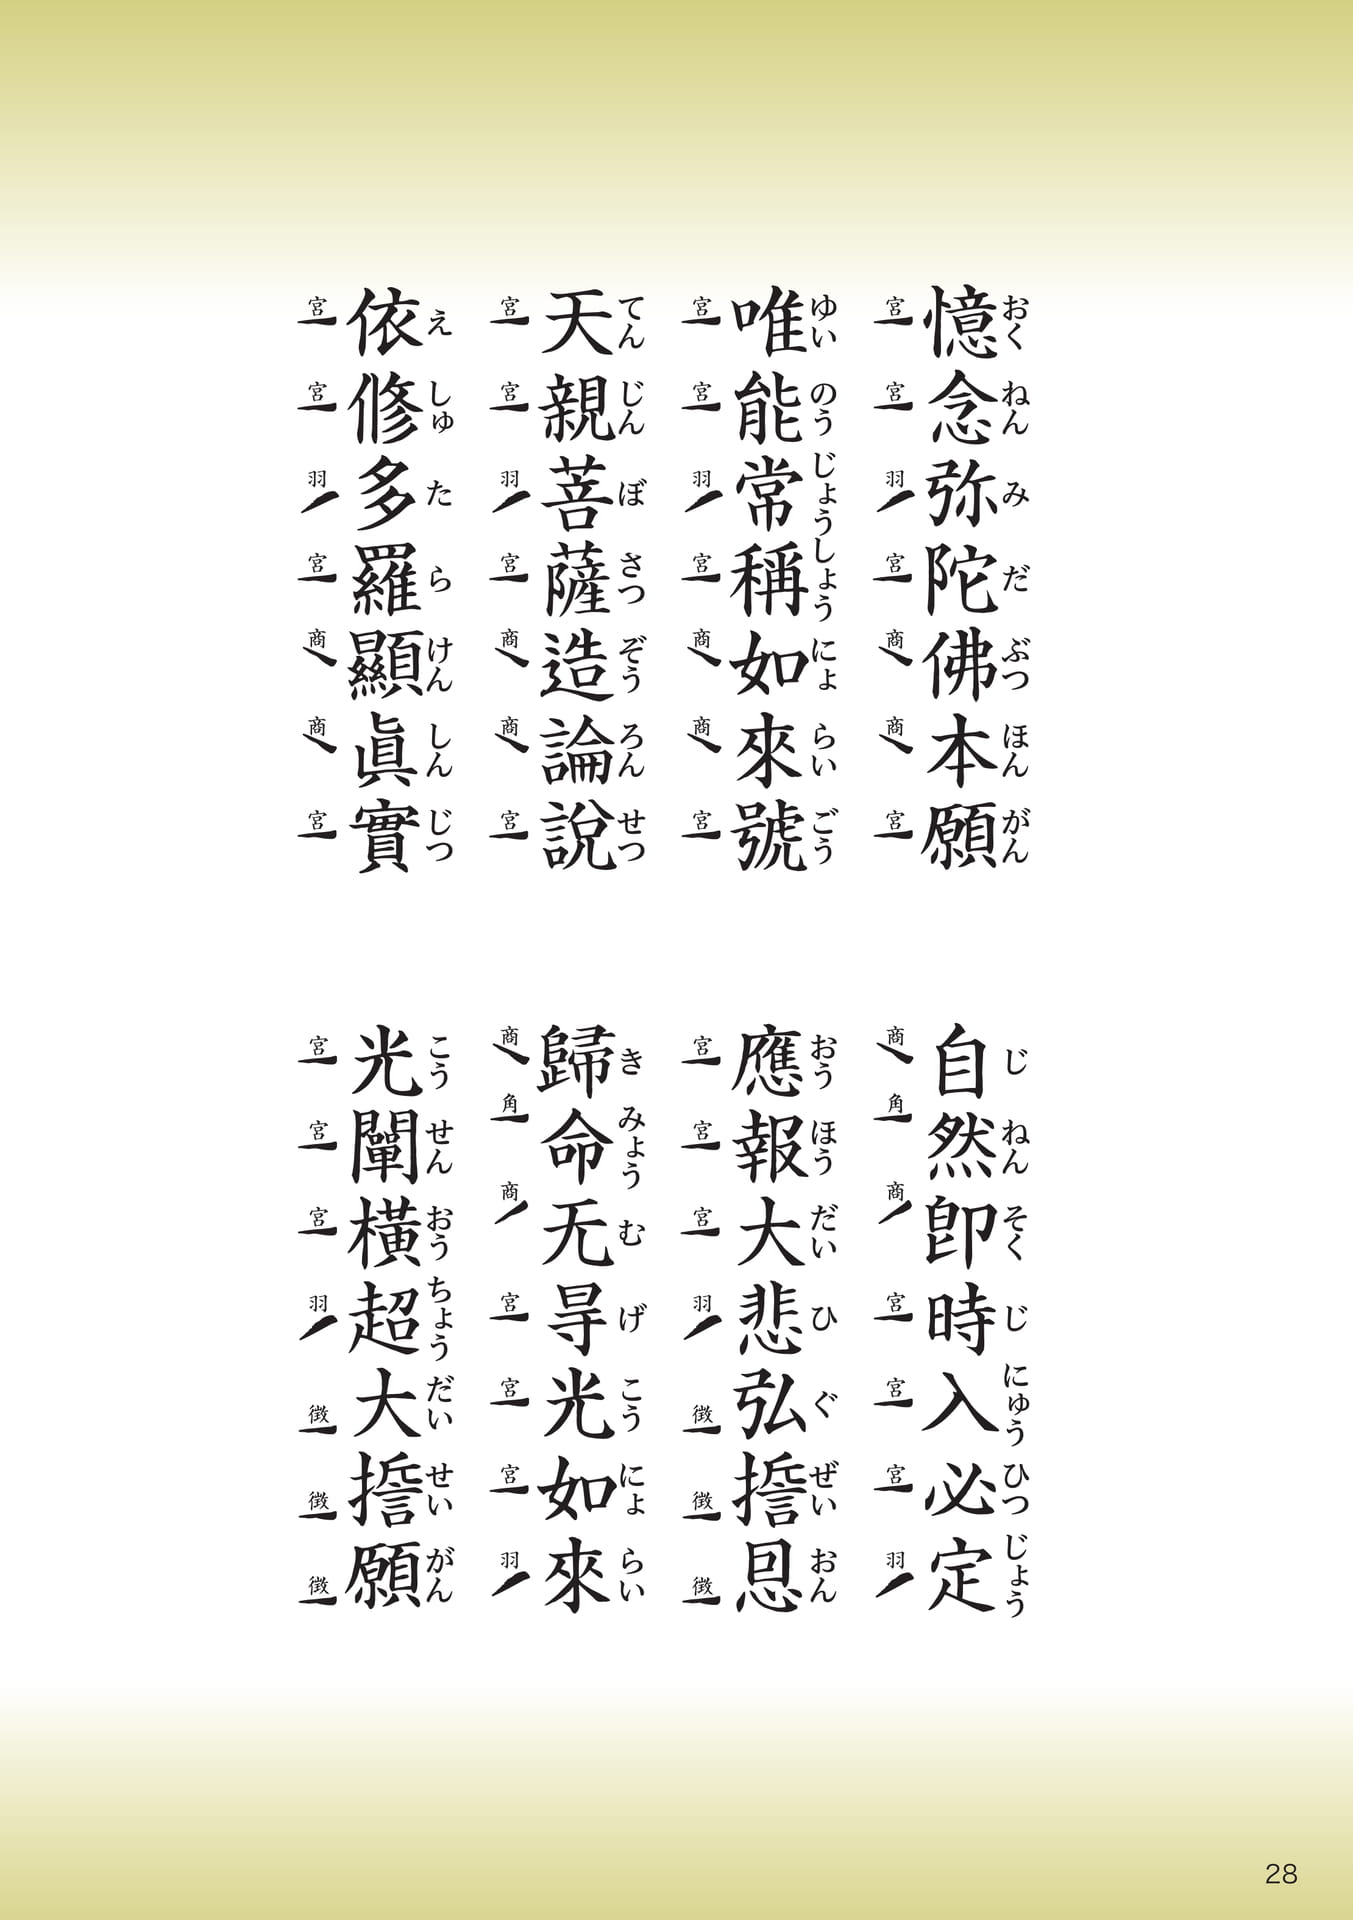 憶念弥陀佛本願
おくねんみだぶつほんがん
宮宮羽宮商商宮
自然卽時入必定
じねんそくじにゅうひつじょう
商角商宮宮宮羽
唯能常稱如來號
ゆいのうじょうしょうにょらいごう
宮宮羽宮商商宮
應報大悲弘誓恩
おうほうだいひぐぜいおん
宮宮宮羽徴徴徴
天親菩薩造論說
てんじんぼさつぞうろんせつ
宮宮羽宮商商宮
歸命无㝵光如來
きみょうむげこうにょらい
商角商宮宮宮羽
依修多羅顯眞實
えしゅたらけんしんじつ
宮宮羽宮商商宮
光闡橫超大誓願
こうせんおうちょうだいせいがん
宮宮宮羽徴徴徴
28